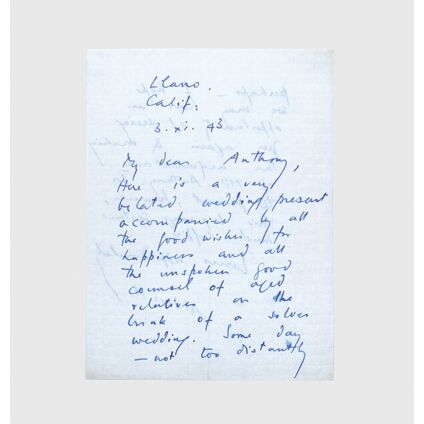 Llano.
Calif:
3. xi. 43
My dear Anthony,
Here is a very
belated wedding present
accompanied by all
the good wishes for
happiness and all
the unspoken good
counsel of aged
relatives on the
brink of a silver
wedding. Some day
— not too distantly